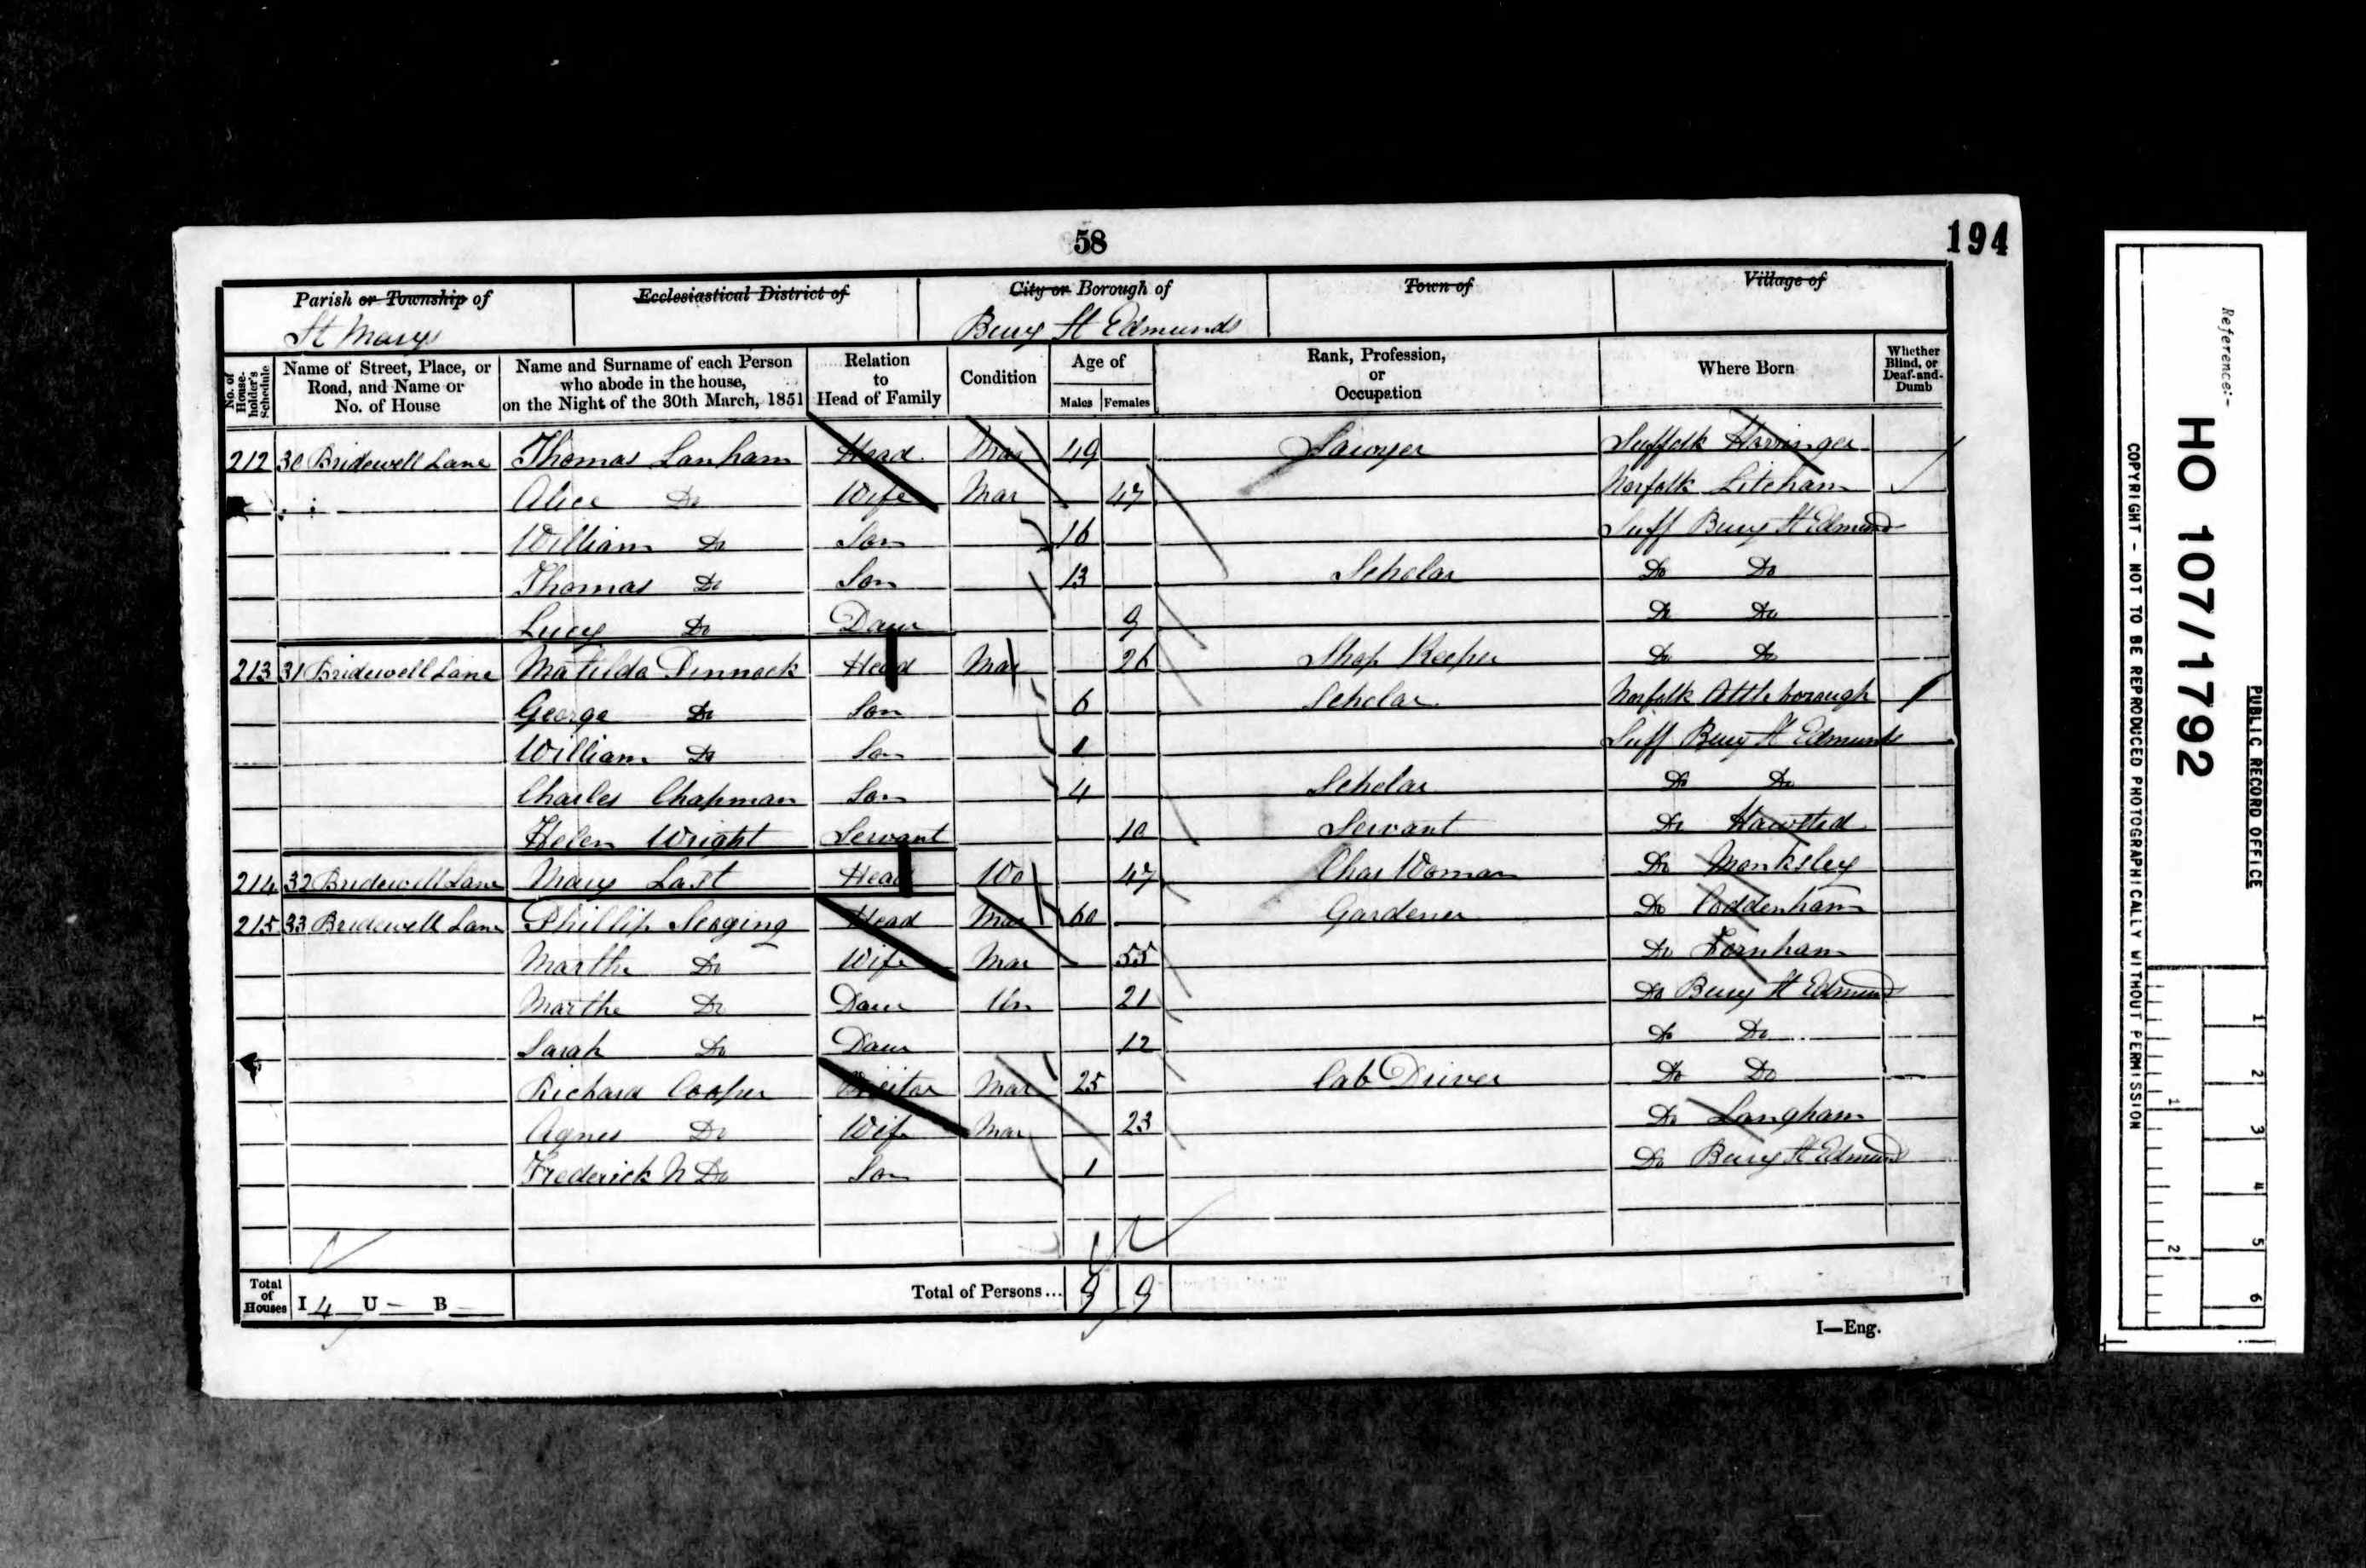 58
194
Parish or Township of
St Marys
Ecclesiastical District of
City or Borough of
Bury St Edmunds
Town of
Village of
No. of House-holder's Schedule
Name of Street, Place, or Road, and Name or No. of House
Name and Surname of each Person who abode in the house, on the Night of the 30th March, 1851
Relation to Head of Family
Condition
Age of
Males Females
Rank, Profession, or Occupation
Where Born
Whether Blind, or Deaf-and-Dumb
212 30 Bridewell Lane Thomas Lanham Head Mar 49 Sawyer Suffolk Horringer
Alice Do Wife Mar 47 Norfolk Litcham
William Do Son 16 Suff Bury St Edmund
Thomas Do Son 13 Scholar Do Do
Lucy Do Daur 9 Do Do
213 31 Bridewell Lane Matilda Dinnock Head Mar 26 Shop Keeper Do Do
George Do Son 6 Scholar Norfolk Attleborough
William Do Son 1 Suff Bury St Edmunds
Charles Chapman Son 4 Scholar Do Do
Helen Wright Servant 10 Servant Do Hawsted
214 32 Bridewell Lane Mary Last Head Wo 47 Char Woman Do Monksley
215 33 Bridewell Lane Phillip Serging Head Mar 60 Gardener Do Coddenham
Martha Do Wife Mar 55 Do Fornham
Martha Do Daur Un 21 Do Bury St Edmund
Sarah Do Daur 12 Do Do
Richard Cooper Visitor Mar 25 Cab Driver Do Do
Agnes Do Wife Mar 23 Do Langham
Frederick N Do Son 1 Do Bury St Edmund
Total of Houses I 4 U — B —
Total of Persons... 9 9
I—Eng.
Reference:-
HO 107/1792
PUBLIC RECORD OFFICE
COPYRIGHT - NOT TO BE REPRODUCED PHOTOGRAPHICALLY WITHOUT PERMISSION
1 2 3 4 5 6
1 2